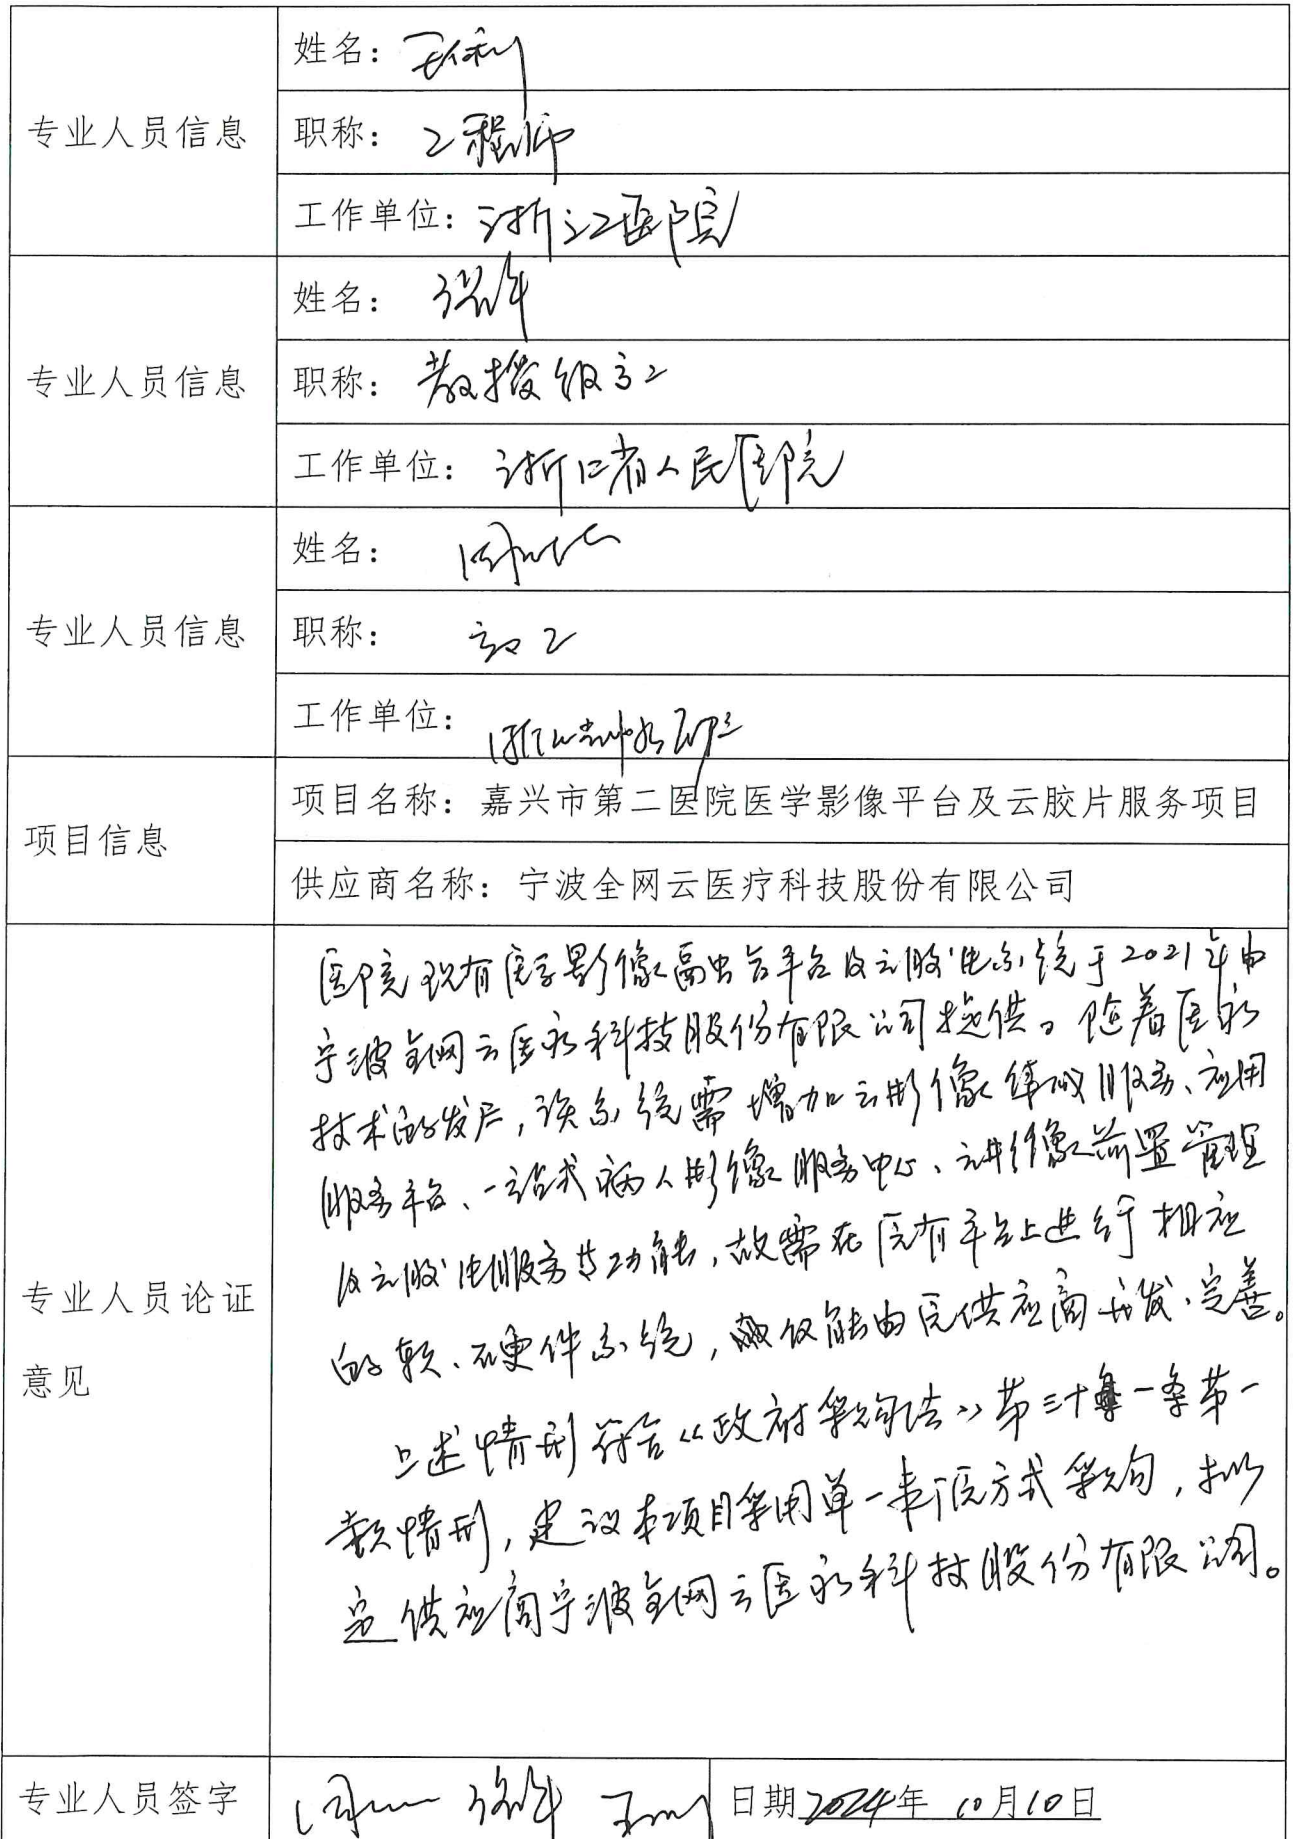 专业人员信息
姓名：王利
职称：工程师
工作单位：浙江医院
专业人员信息
姓名：
职称：教授级高工
工作单位：浙江省人民医院
专业人员信息
姓名：周
职称：高工
工作单位：浙江
项目信息
项目名称：嘉兴市第二医院医学影像平台及云胶片服务项目
供应商名称：宁波全网云医疗科技股份有限公司
专业人员论证
意见
医院现有医学影像平台及云胶片系统于2021年由
宁波全网云医疗科技股份有限公司提供。随着医疗
技术的发展，该系统需增加云影像集成服务、应用
服务平台、一站式病人影像服务中心、云影像前置管理
及云胶片服务等功能，故需在原有平台上进行相应
的软、硬件系统，仅能由原供应商开发、完善。
上述情形符合《政府采购法》第三十一条第一
款情形，建议本项目采用单一来源方式采购，拟
定供应商宁波全网云医疗科技股份有限公司。
专业人员签字
日期 2024年 10月10日